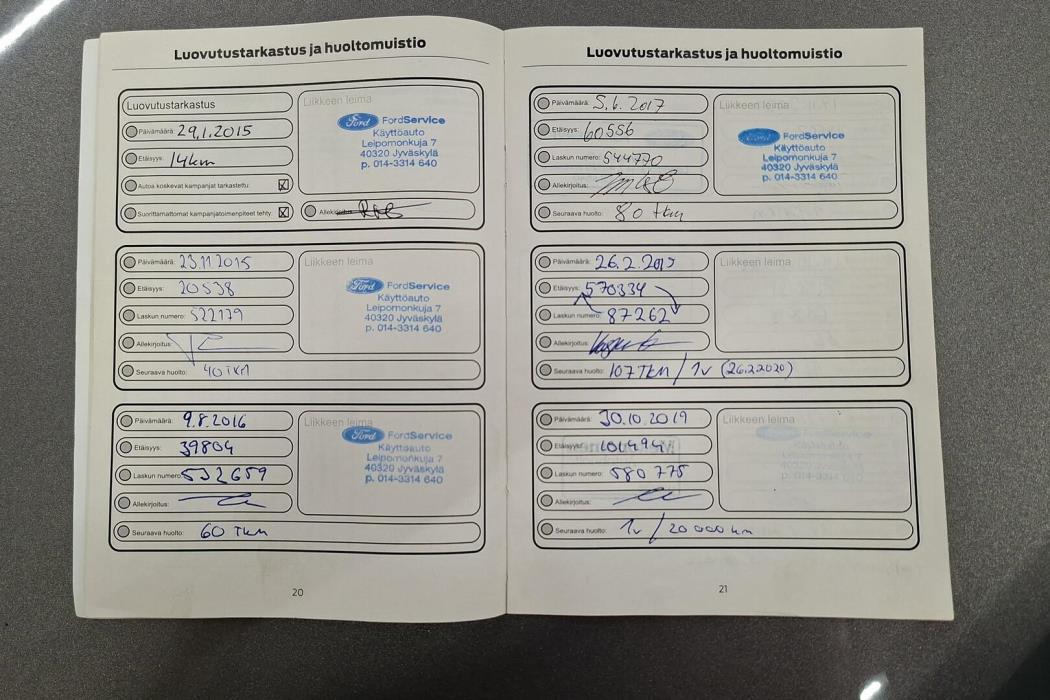 Luovutustarkastus ja huoltomuistio
Luovutustarkastus
Päivämäärä: 29.1.2015
Etäisyys: 14km
Autoa koskevat kampanjat tarkastettu
Suorittamattomat kampanjatoimenpiteet tehty
Liikkeen leima
Ford FordService
Käyttöauto
Leipomonkuja 7
40320 Jyväskylä
p. 014-3314 640
Allekirjoitus:
Päivämäärä: 23.11.2015
Etäisyys: 20538
Laskun numero: 522179
Allekirjoitus:
Seuraava huolto: 40 TKM
Liikkeen leima
Ford FordService
Käyttöauto
Leipomonkuja 7
40320 Jyväskylä
p. 014-3314 640
Päivämäärä: 9.8.2016
Etäisyys: 39804
Laskun numero: 532659
Allekirjoitus:
Seuraava huolto: 60 TKM
Liikkeen leima
Ford FordService
Käyttöauto
Leipomonkuja 7
40320 Jyväskylä
p. 014-3314 640
20
Luovutustarkastus ja huoltomuistio
Päivämäärä: 5.6.2017
Etäisyys: 60556
Laskun numero: 544770
Allekirjoitus:
Seuraava huolto: 80 tkm
Liikkeen leima
Ford FordService
Käyttöauto
Leipomonkuja 7
40320 Jyväskylä
p. 014-3314 640
Päivämäärä: 26.2.2019
Etäisyys: 570334
Laskun numero: 87262
Allekirjoitus:
Seuraava huolto: 107 TKM / 1v (26.2.2020)
Liikkeen leima
Päivämäärä: 30.10.2019
Etäisyys: 101494
Laskun numero: 580775
Allekirjoitus:
Seuraava huolto: 1v / 20 000 km
Liikkeen leima
21